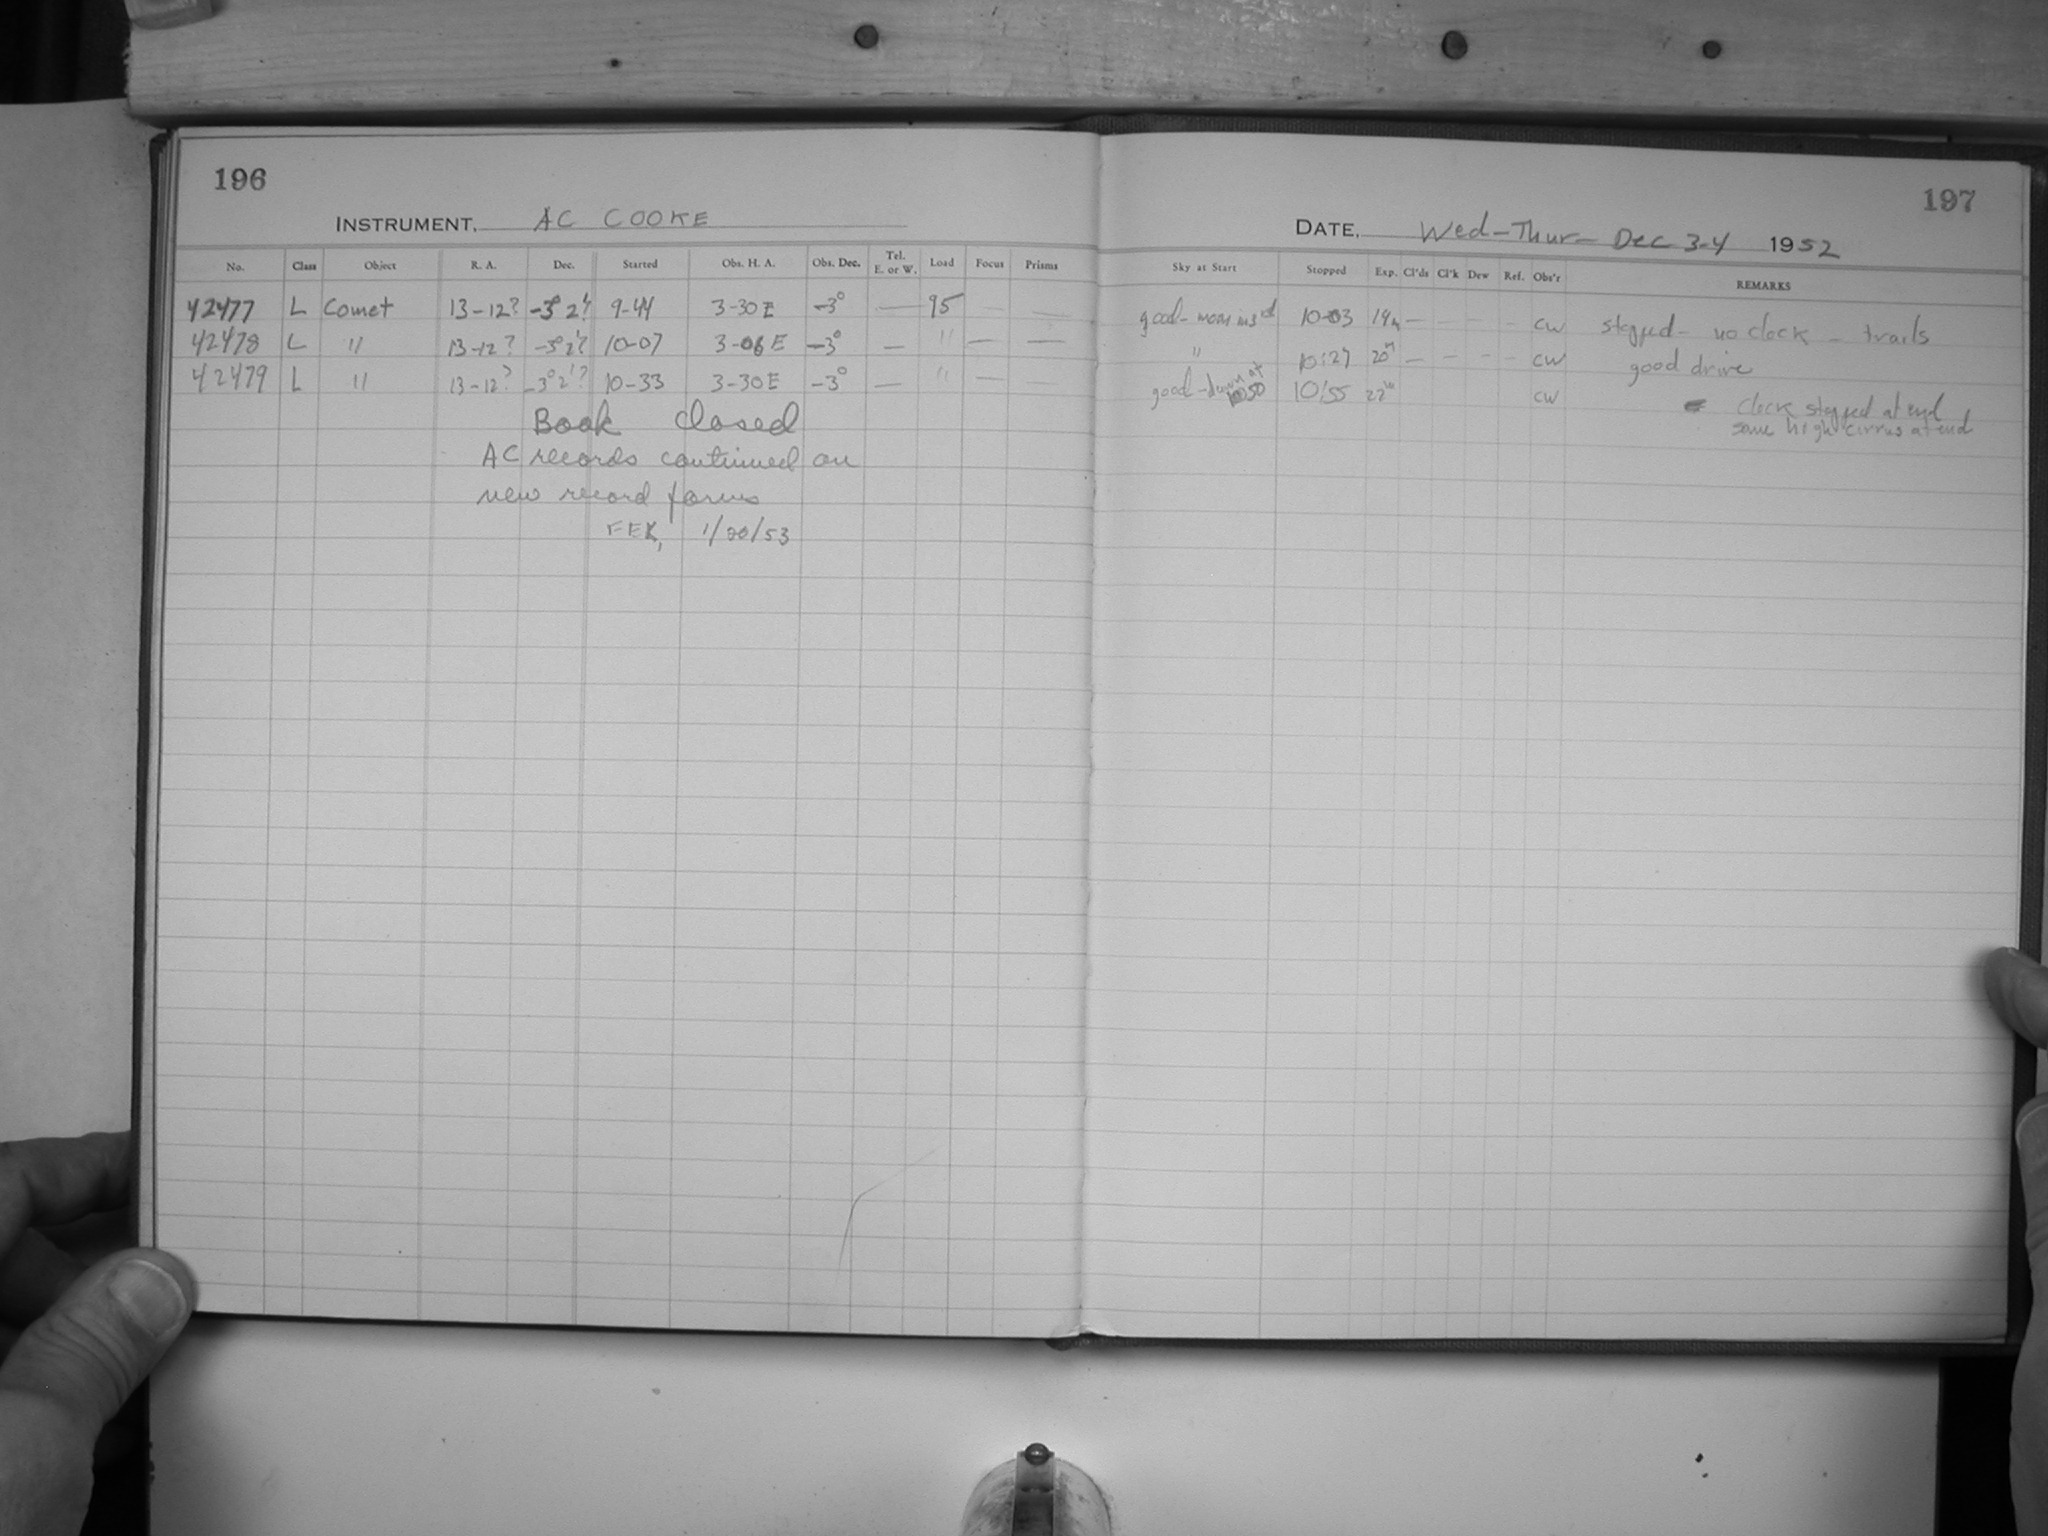 196
INSTRUMENT, AC COOKE
No. Class Object R. A. Dec. Started Obs. H. A. Obs. Dec. Tel. E. or W. Load Focus Prisms
42477 L Comet 13-12? -3° 2'? 9-44 3-30 E -3° — 95 — —
42478 L " 13-12? -3° 2'? 10-07 3-06 E -3° — " — —
42479 L " 13-12? -3° 2'? 10-33 3-30 E -3° — " — —
Book closed
AC records continued on
new record forms
FEK, 1/20/53
197
DATE, Wed-Thur- Dec 3-4 1952
Sky at Start Stopped Exp. Cl'ds Cl'k Dew Ref. Obs'r REMARKS
good - moon 10-03 19m — — — - CW stopped - no clock - trails
" 10:27 20m — — - - CW good drive
good - dawn at 1050 10:55 22m CW clock stopped at end
some high cirrus at end